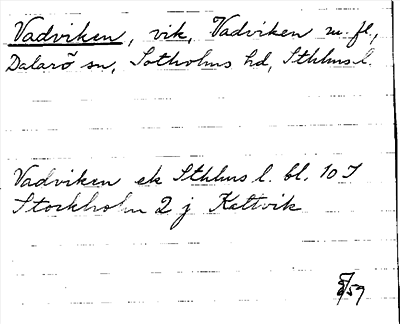 Vadviken, vik, Vadviken m. fl.,
Dalarö sn, Sotholms hd, Sthlms l.
Vadviken ek Sthlms l. bl. 10 I
Stockholm 2 j Kattvik